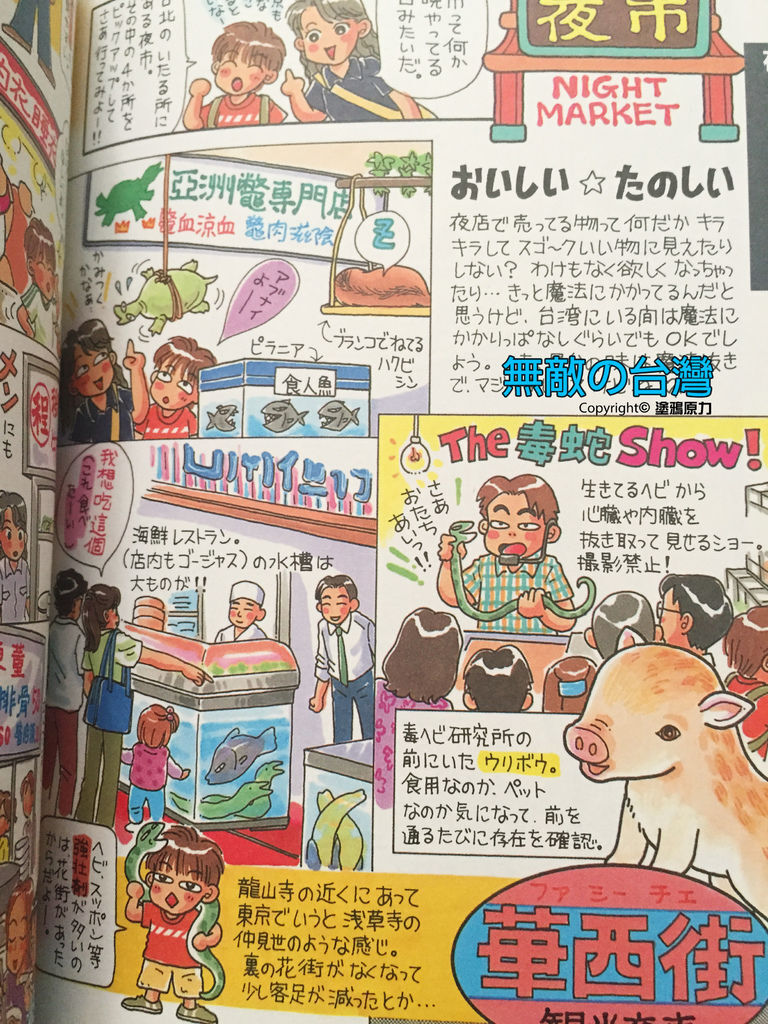 夜市
NIGHT
MARKET
台北のいたる所に
ある夜市。
その中の4か所を
ピックアップして
さあ行ってみよー!!
亞洲鱉専門店
鱉血涼血 鱉肉滋陰
かみつく
かなぁ。
アブナイ
よー
ブランコでねてる
ハクビ
シン
ピラニア
食人魚
おいしい☆たのしい
夜店で売ってる物って何だかキラ
キラしてスゴ〜クいい物に見えたり
しない? わけもなく欲しくなっちゃっ
たり…きっと魔法にかかってるんだと
思うけど、台湾にいる間は魔法に
かかりっぱなしぐらいでもOKでし
ょう。
無敵の台灣
Copyright© 塗鴉原力
The 毒蛇 Show!
さあ
おたち
あいっ!!
生きてるヘビから
心臓や内臓を
抜き取って見せるショー。
撮影禁止!
我想吃這個
これ食べ
たーい
海鮮レストラン。
(店内もゴージャス)の水槽は
大ものが!!
毒ヘビ研究所の
前にいたウリボウ。
食用なのか、ペット
なのか気になって、前を
通るたびに存在を確認。
ヘビ、スッポン等
強壮剤が多いの
は花街があった
からだよー。
龍山寺の近くにあって
東京でいうと浅草寺の
仲見世のような感じ。
裏の花街がなくなって
少し客足が減ったとか…
ファミーチェ
華西街
メン
にも
程
排骨